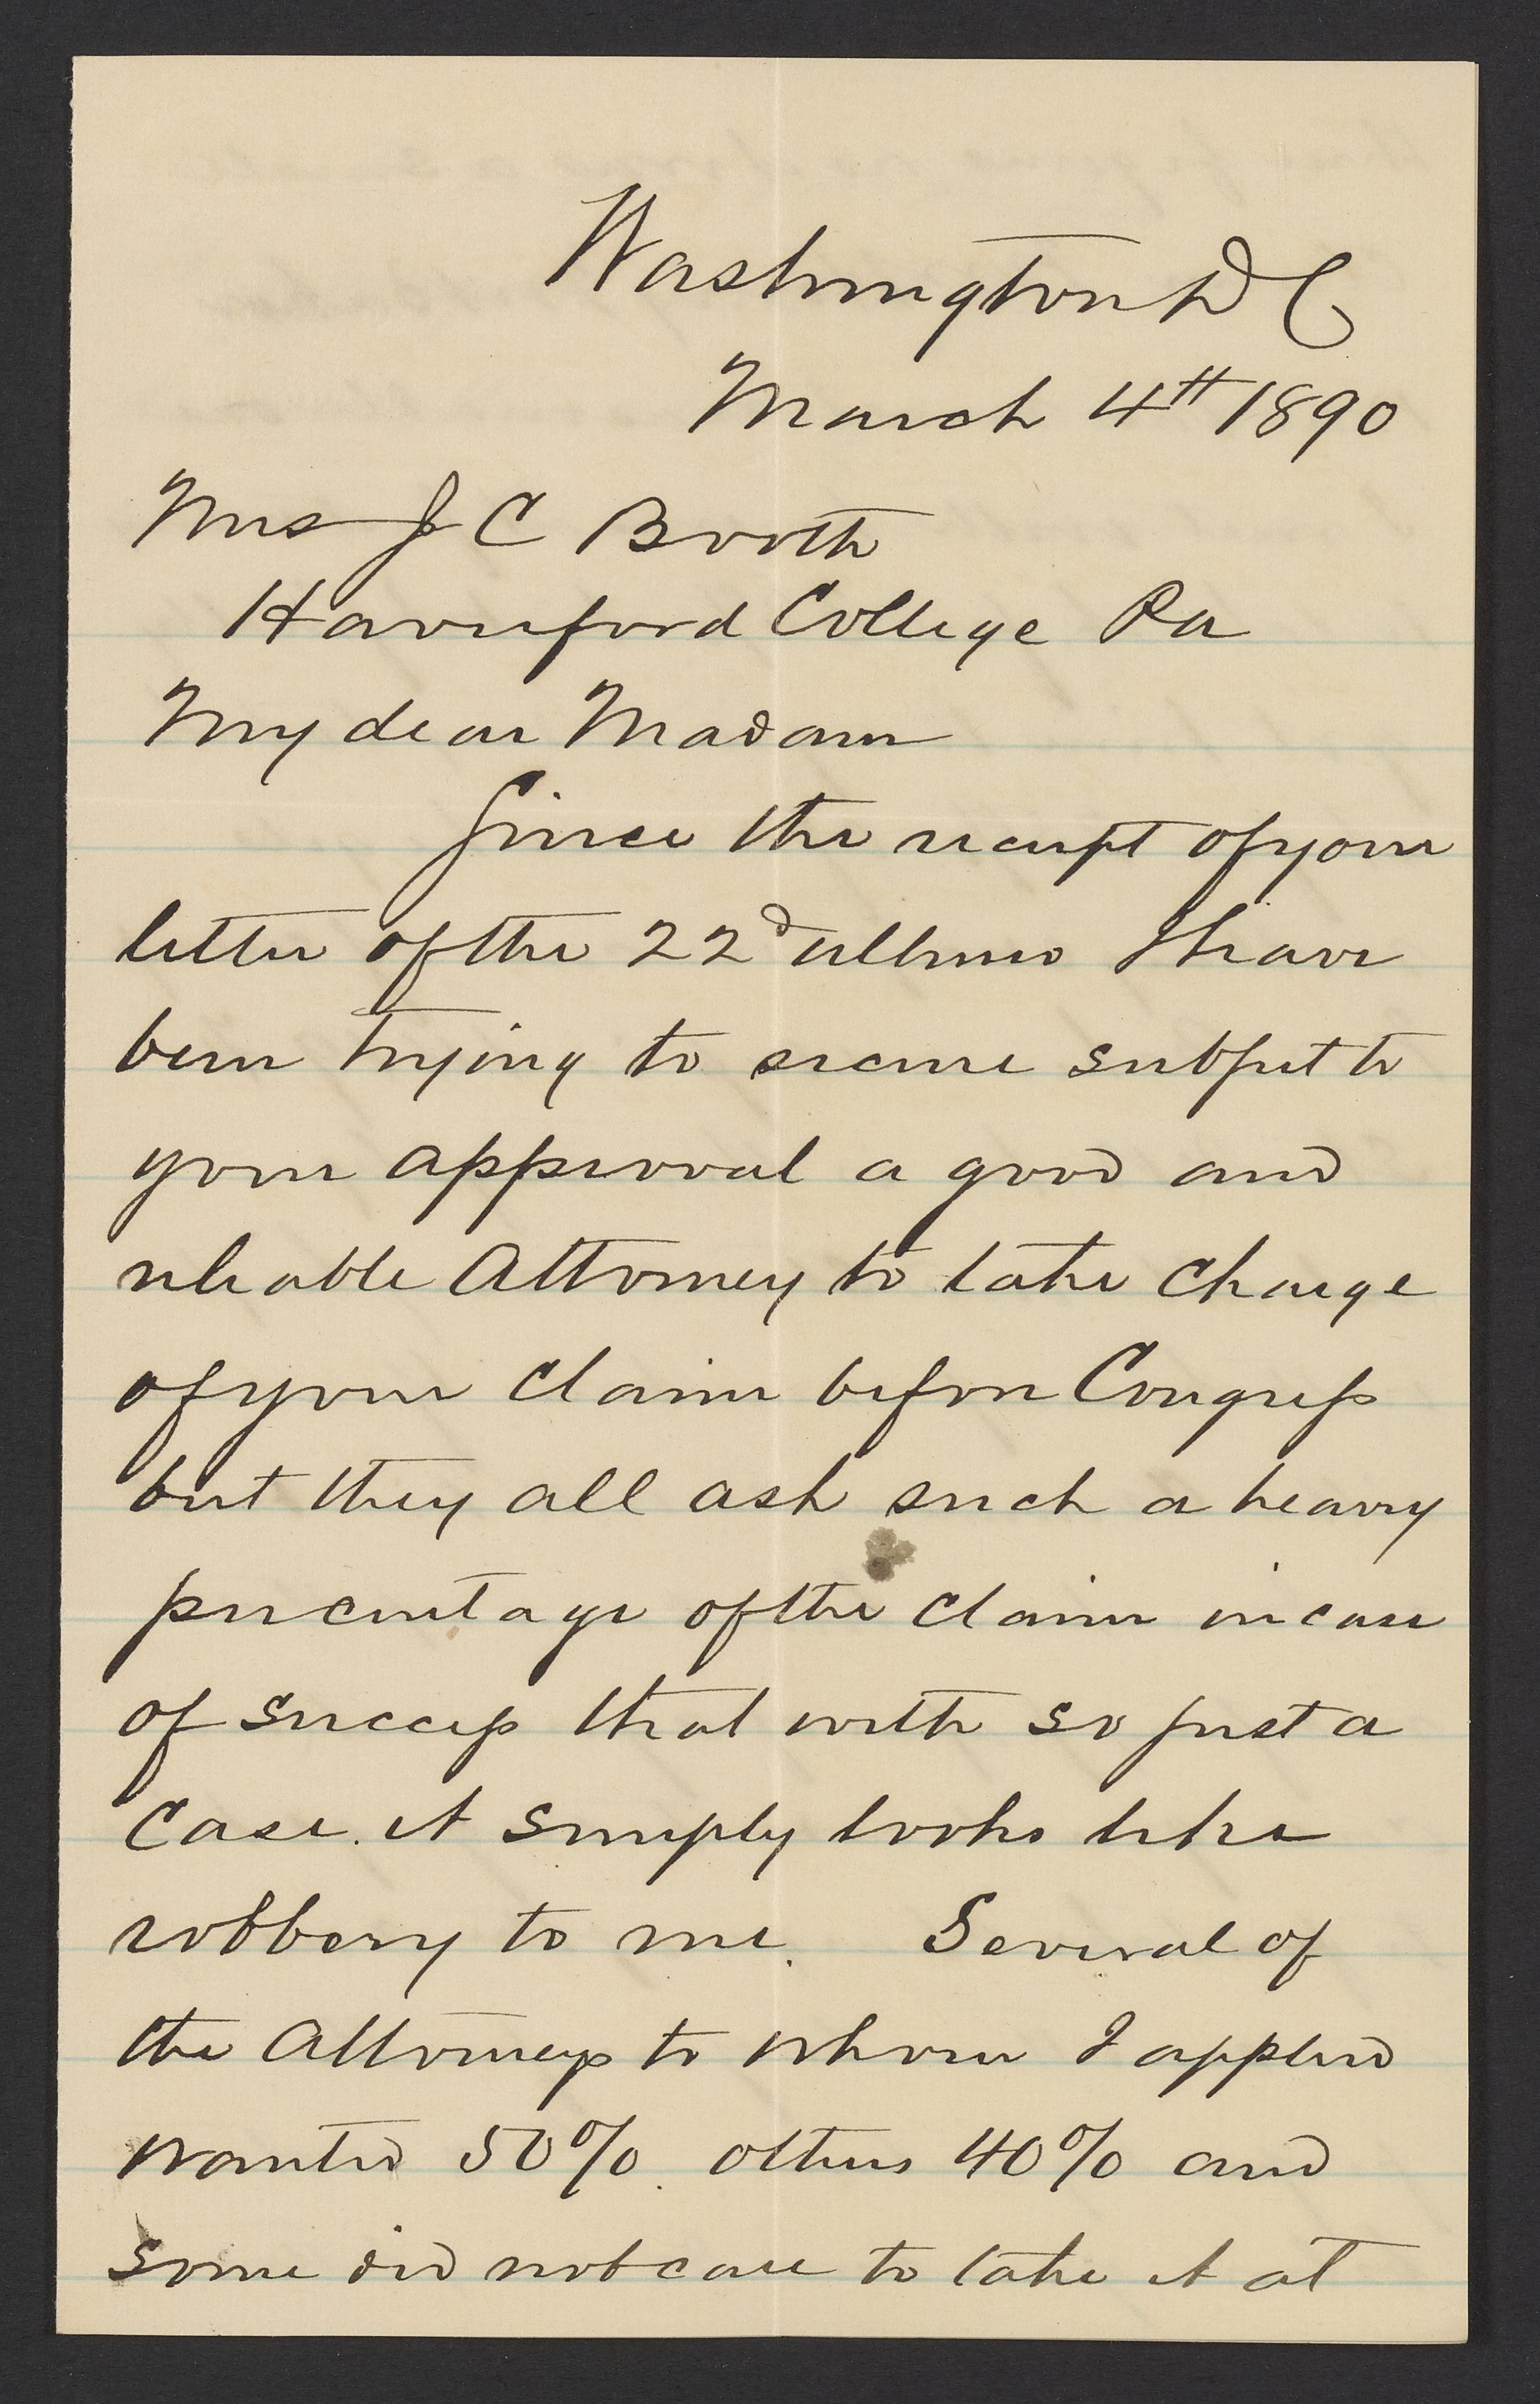 Washington D C
March 4th 1890
Mrs J C Booth
Haverford College Pa
My dear Madam
Since the receipt of your
letter of the 22d ultimo I have
been trying to secure subject to
your approval a good and
reliable Attorney to take charge
of your claim before Congress
but they all ask such a heavy
percentage of the claim in case
of success that with so just a
case. it simply looks like
robbery to me. Several of
the Attorneys to whom I applied
wanted 50%. others 40% and
some did not care to take it at